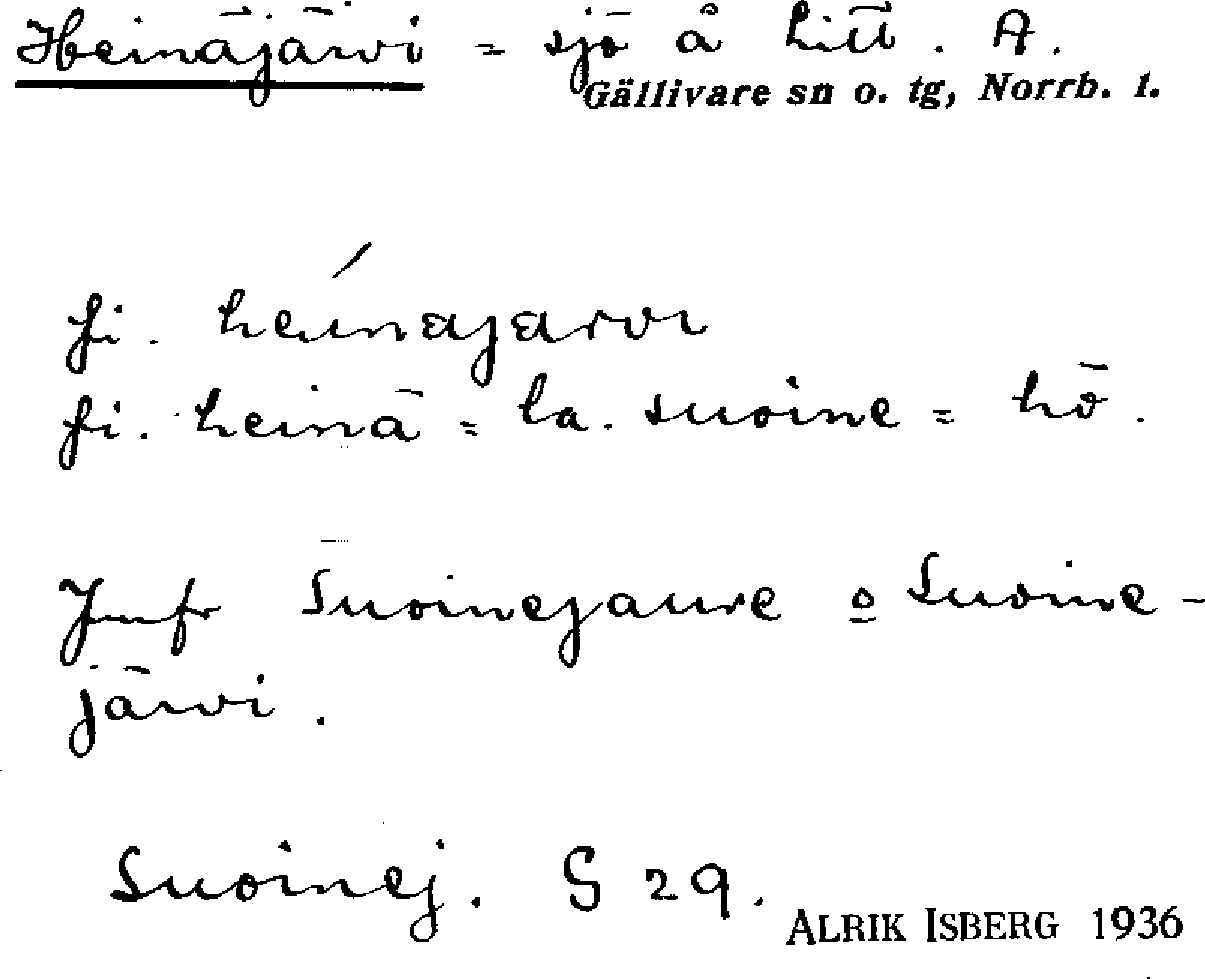 Heinäjärvi = sjö å hitt. A.
Gällivare sn o. tg, Norrb. l.
fi. heinäjarvi
fi. heinä = la. suoine = hö.
Jmfr Suoinejaure o Suoine-
järvi.
Suoinej. § 29.
ALRIK ISBERG 1936